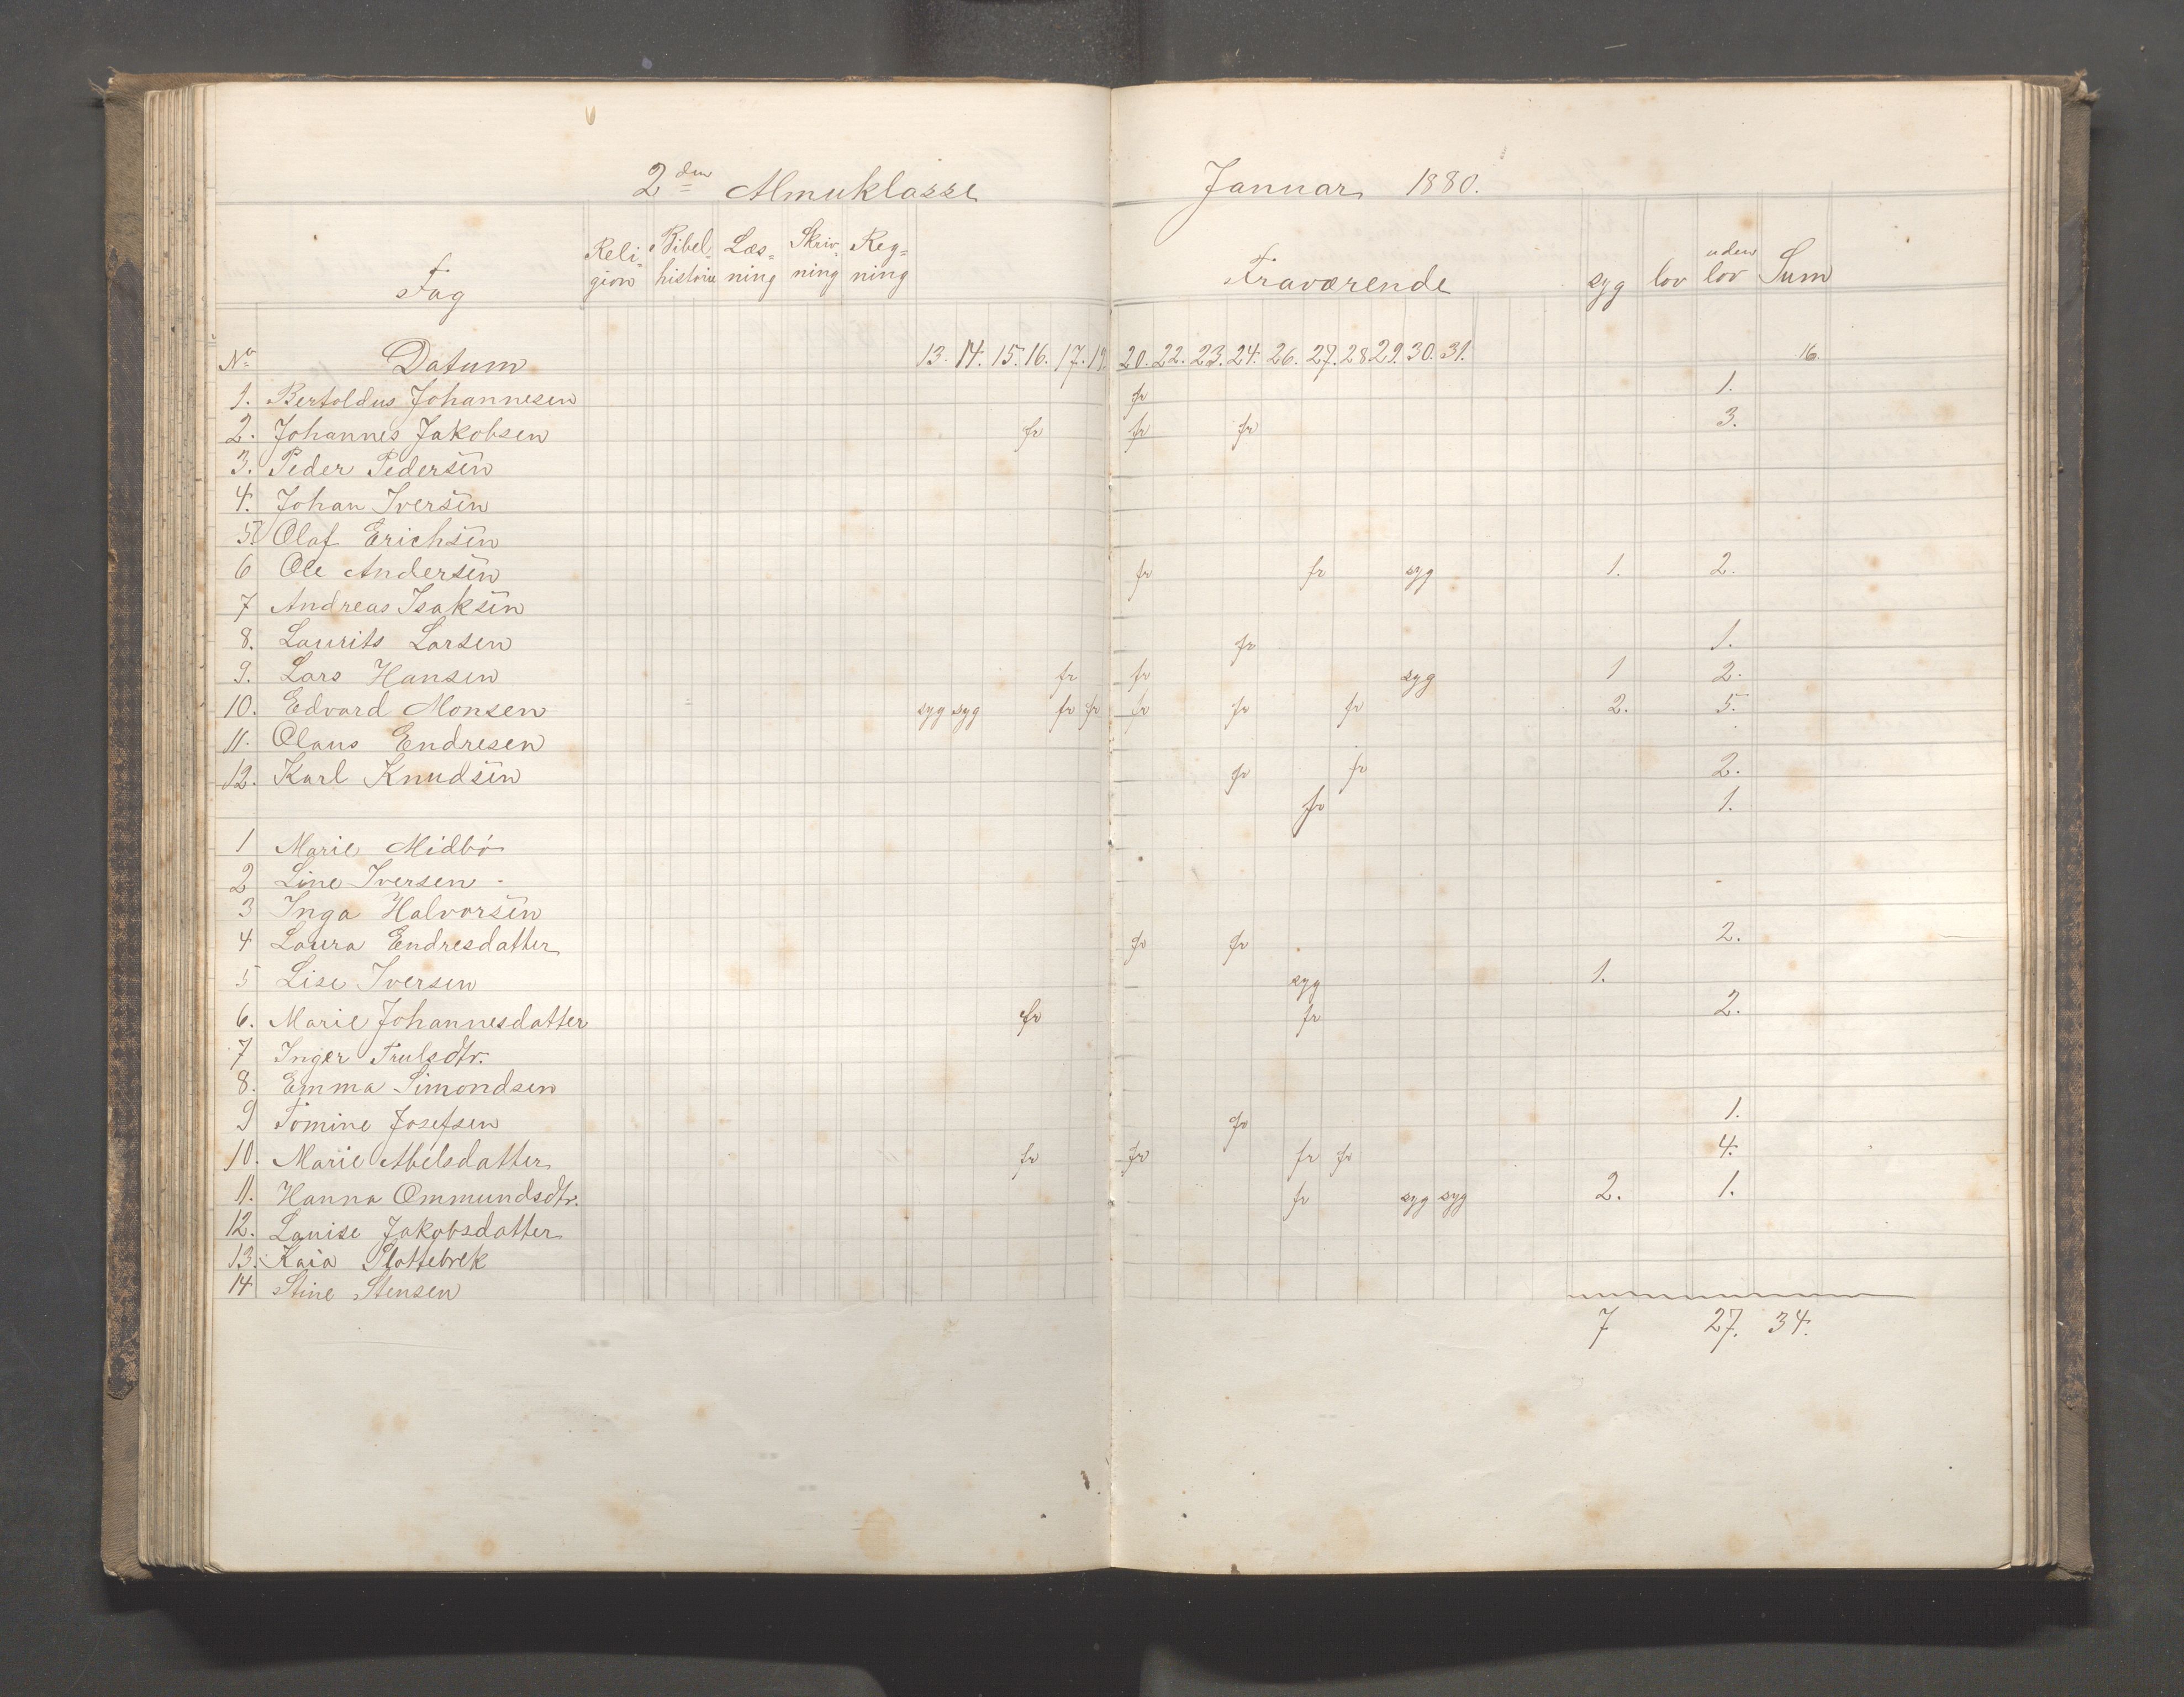 2den Almuklasse Januar 1880.
Fag Religion Bibelhistorie Læsning Skrivning Regning Fraværende syg lov uden lov Sum
No Datum 13. 14. 15. 16. 17. 19. 20. 22. 23. 24. 26. 27. 28. 29. 30. 31. 16.
1. Bertoldus Johannesen fr 1.
2. Johannes Jakobsen fr fr fr 3.
3. Peder Pedersen
4. Johan Iversen
5. Olaf Erichsen
6 Ole Andersen fr fr syg 1. 2.
7 Andreas Isaksen
8. Laurits Larsen fr 1.
9. Lars Hansen fr fr syg 1 2.
10. Edvard Monsen syg syg fr fr fr fr fr 2. 5.
11. Olaus Endresen
12. Karl Knudsen fr fr 2.
fr 1.
1 Marie Midbö
2 Line Iversen
3 Inga Halvorsen
4 Laura Endresdatter fr fr 2.
5 Lise Iversen syg 1.
6. Marie Johannesdatter fr fr 2.
7 Inger Trulsdtr.
8. Emma Simondsen
9 Tomine Josefsen fr 1.
10. Marie Abelsdatter fr fr fr fr 4.
11. Hanna Ommundsdtr. fr syg syg 2. 1.
12. Louise Jakobsdatter
13. Kaia Plattebrek
14 Stine Stensen
7 27. 34.